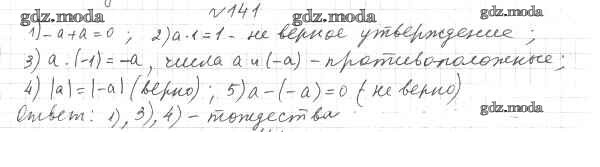 №141
gdz.moda gdz.moda gdz.moda
1) -a+a=0; 2) a·1=1 - не верное утверждение;
3) a·(-1)=-a, числа a и (-a) - противоположные;
4) |a|=|-a| (верно); 5) a-(-a)=0 (не верно)
gdz.moda gdz.moda
Ответ: 1), 3), 4) - тождества